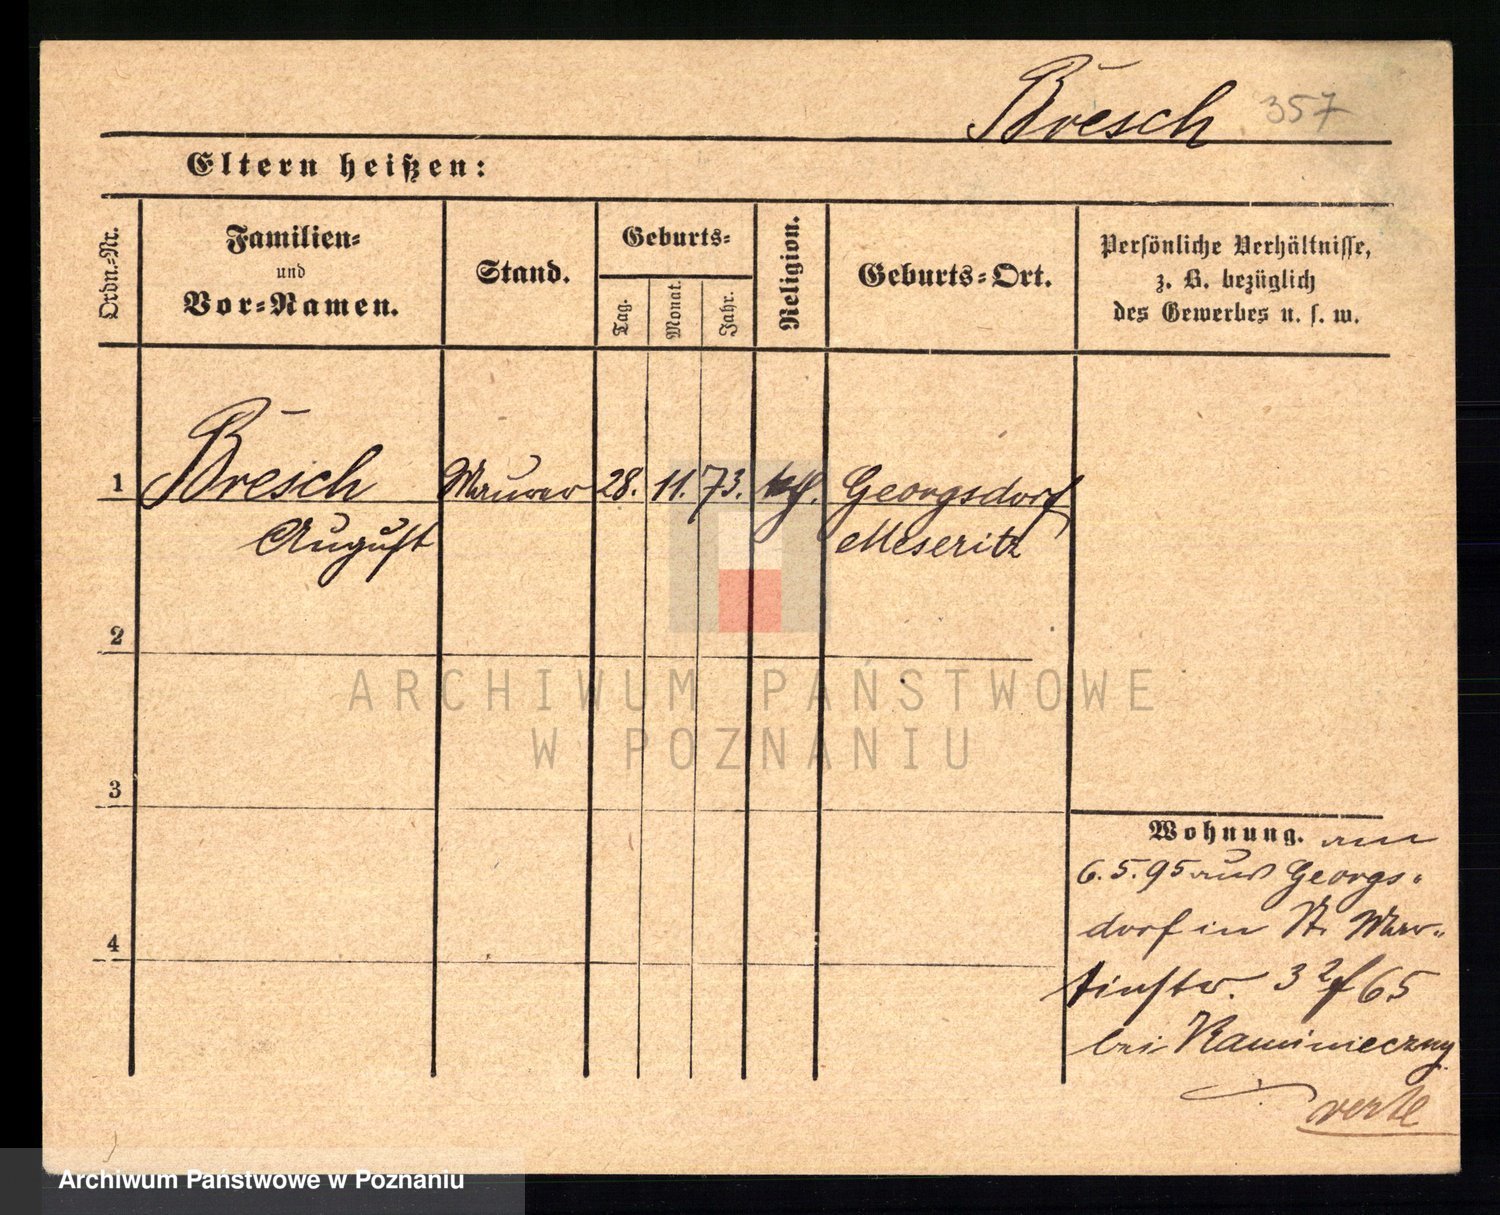 Bresch 357
Eltern heißen:
Ordn.-Nr.
Familien-
und
Vor-Namen.
Stand.
Geburts-
Tag.
Monat.
Jahr.
Religion.
Geburts-Ort.
Persönliche Verhältnisse,
z. B. bezüglich
des Gewerbes u. s. w.
1 Bresch Maurer 28. 11. 73. Georgsdorf
August Meseritz
2
3
4
ARCHIWUM PAŃSTWOWE
W POZNANIU
Wohnung. am
6. 5. 95 aus Georgs-
dorf in St. Mar-
tinstr. 3 65
bei Kaminieczny
verte
Archiwum Państwowe w Poznaniu